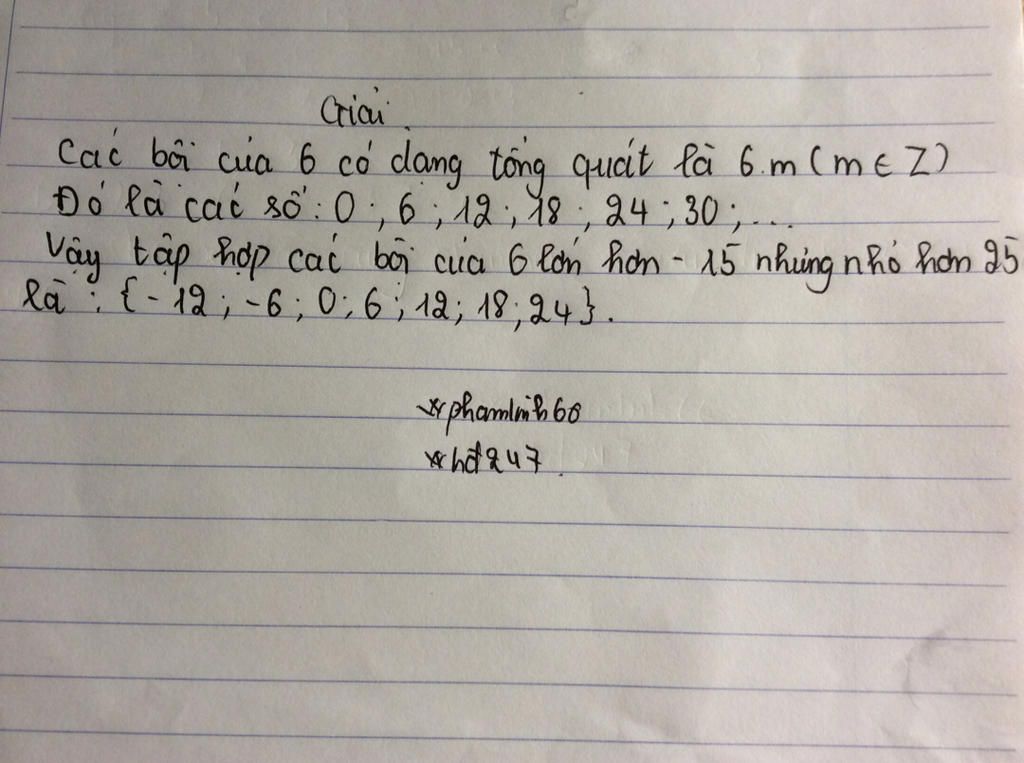 Giải.
Các bội của 6 có dạng tổng quát là 6.m (m ∈ Z)
Đó là các số: 0; 6; 12; 18; 24; 30; ...
Vậy tập hợp các bội của 6 lớn hơn -15 nhưng nhỏ hơn 25
là: {-12; -6; 0; 6; 12; 18; 24}.
*phamlinh60
*hđ247